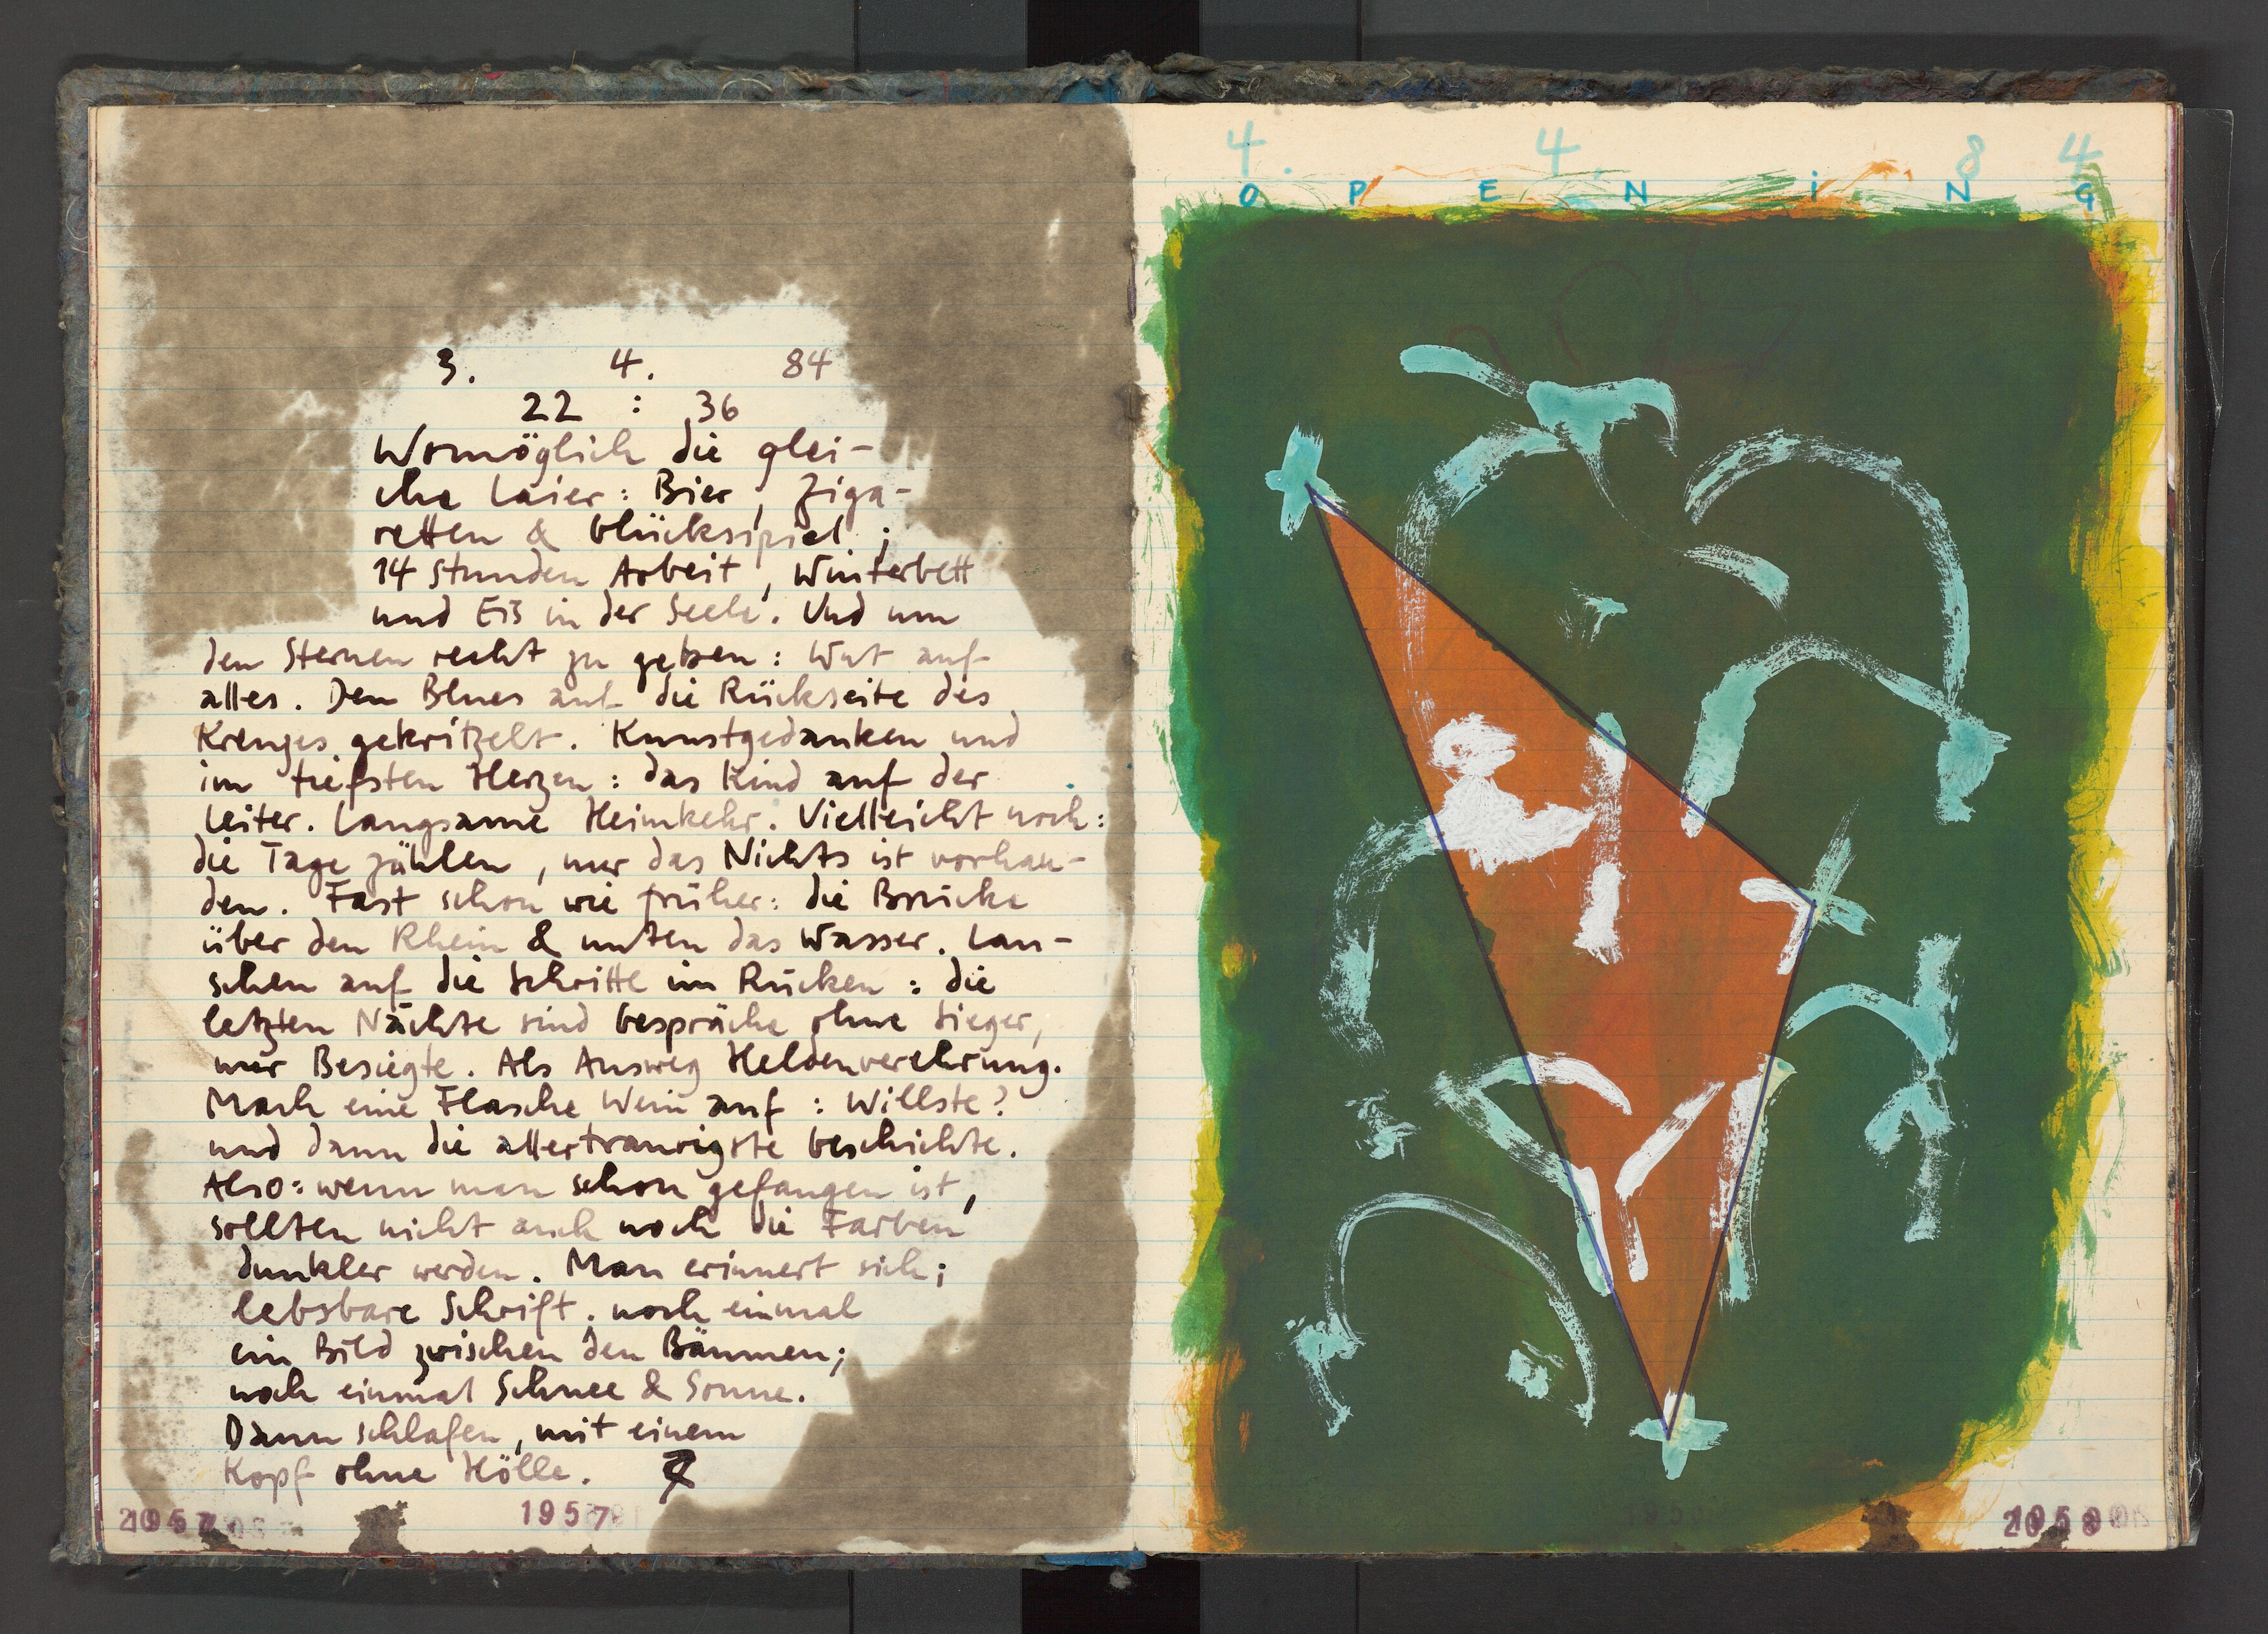 3. 4. 84
22 : 36
Womöglich die glei-
che Laier: Bier, Ziga-
retten & Glücksspiel;
14 Stunden Arbeit, Winterbett
und Eis in der Seele. Und um
den Sternen recht zu geben: Wut auf
alles. Den Blues auf die Rückseite des
Kreuzes gekritzelt. Kunstgedanken und
im tiefsten Herzen: das Kind auf der
Leiter. Langsame Heimkehr. Vielleicht noch:
die Tage zählen, nur das Nichts ist vorhan-
den. Fast schon wie früher: die Brücke
über den Rhein & unten das Wasser. Lau-
schen auf die Schritte im Rücken: die
letzten Nächte sind Gespräche ohne Sieger,
nur Besiegte. Als Ausweg Heldenverehrung.
Mach eine Flasche Wein auf: Willste?
und dann die allertraurigste Geschichte.
Also: wenn man schon gefangen ist,
sollten nicht auch noch die Farben
dunkler werden. Man erinnert sich;
lebsbare Schrift. noch einmal
ein Bild zwischen den Bäumen;
noch einmal Schnee & Sonne.
Dann schlafen, mit einem
Kopf ohne Hölle.
1957
4. 4. 84
OPENiNG